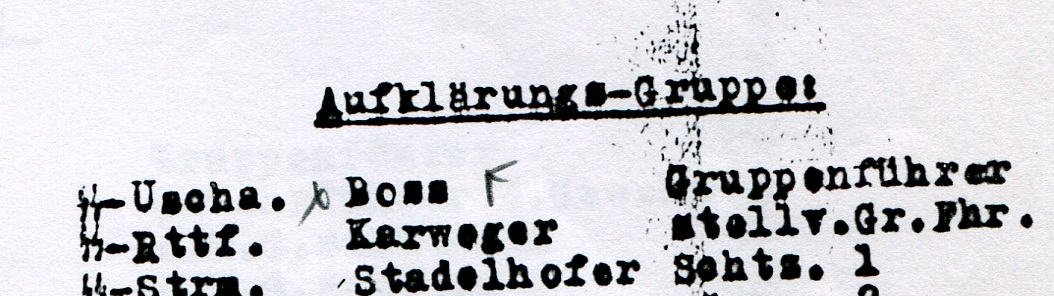 Aufklärungs-Gruppe:
SS-Uscha. Boss Gruppenführer
SS-Rttf. Karweger stellv.Gr.Fhr.
SS-Strm. Stadelhofer Schtz. 1